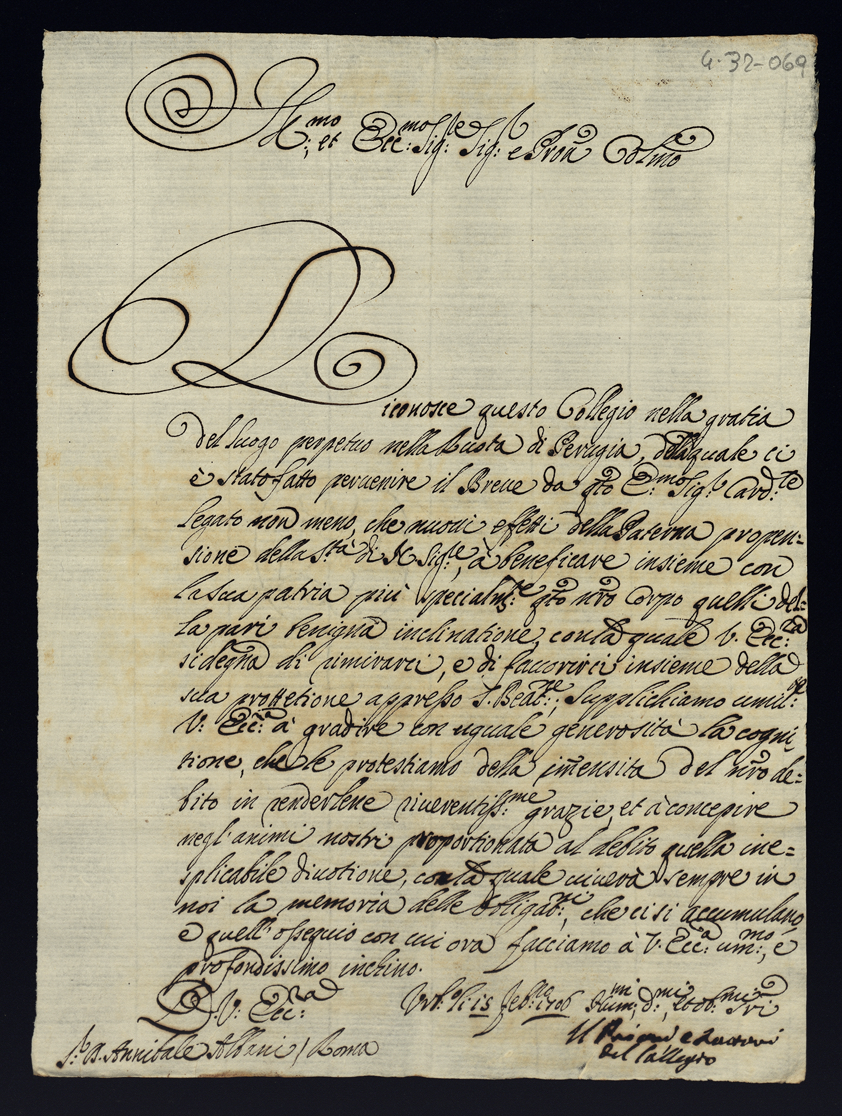 4-32-069
Ill.mo et Ecc.mo Sig.re Sig.r e Pron Colmo
Riconosce questo Collegio nella gratia
del luogo perpetuo nella Ruota di Perugia, della quale ci
è stato fatto pervenire il Breve da qto E.mo Sig.r Card.le
Legato non meno, che nuovi effetti della Paterna propen=
sione della S.tà di N. Sig.re, à beneficare insieme con
la sua patria più specialm.te qto nro Corpo quelli del=
la pari benigna inclinatione, con la quale V. Ecc.za
si degna di rimirarci, e di favorirci insieme della
sua prottetione appresso S. Beat.ne, supplichiamo umil.te
V. Ecc.a à gradire con uguale generosità la cogni
tione, che le protestiamo della im̃ensita del nro de=
bito in renderlene riverentiss.me grazie, et à concepire
negl'animi nostri proportionata al debito quella ine=
splicabile divotione, con la quale viverà sempre in
noi la memoria delle obligat.ni, che ci si accumulano,
e quell'ossequio con cui ora facciamo à V. Ecc.a um.mo, e
profondissimo inchino.
D. V. Ecc.za Urb.o li 15 Feb.ro 1706 Hum.mi, d.mi, et ob.mi Sri
Il Priori e Dottori
del Collegio
S.r D. Annibale Albani / Roma